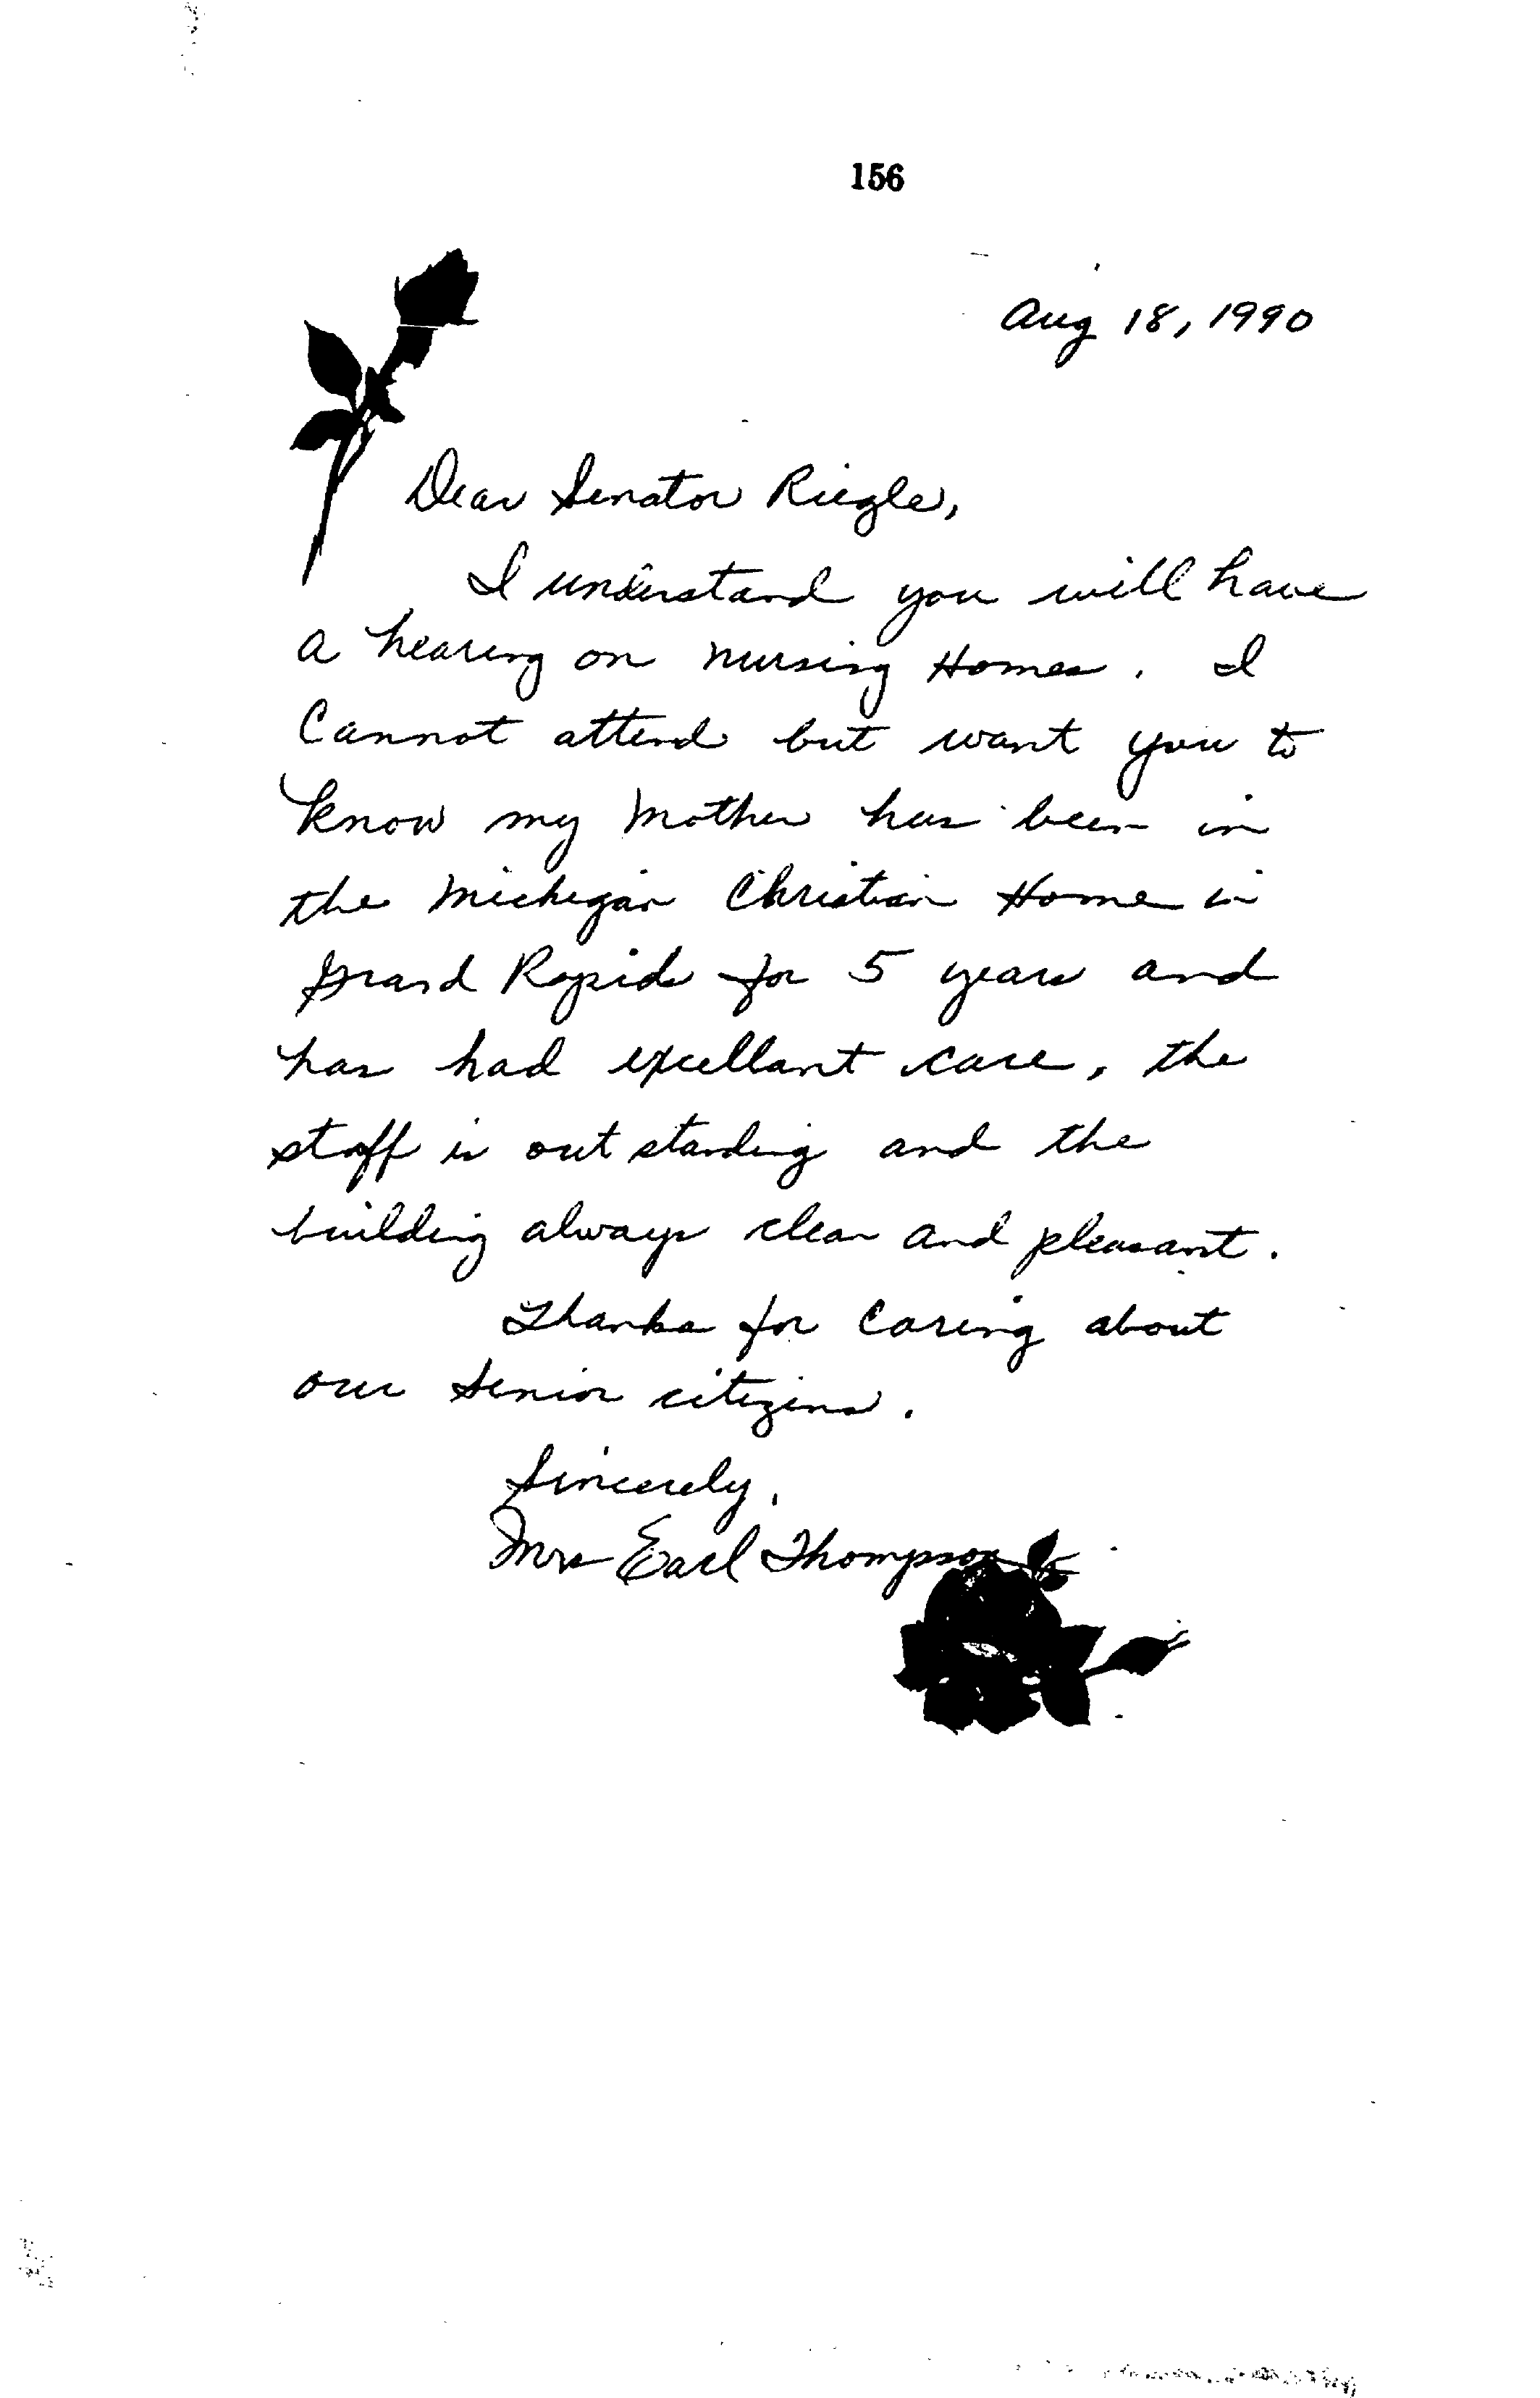 156
Aug 18, 1990
Dear Senator Riegle,
I understand you will have
a hearing on nursing Homes. I
Cannot attend but want you to
know my mother has been in
the Michigan Christian Home in
Grand Rapids for 5 years and
has had excellant care, the
staff is out standing and the
building always clean and pleasant.
Thanks for Caring about
our senior citizens.
Sincerely,
Mrs Earl Thompson